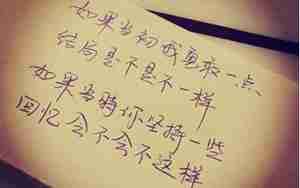 如果当初我勇敢一点
结局是不是不一样
如果当时你坚持一些
回忆会不会不这样